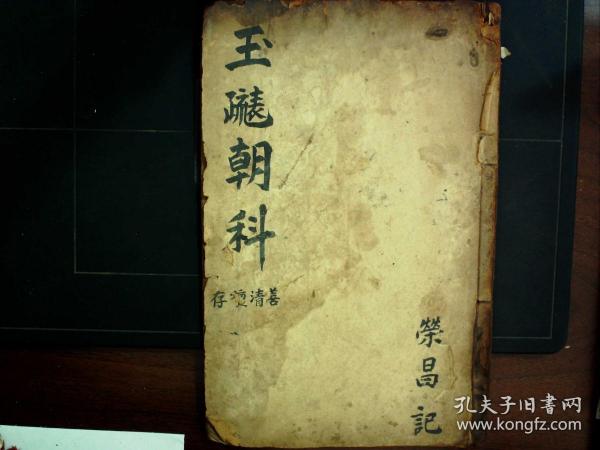 玉
朝科
善清
存
榮昌記
孔夫子旧書网
www.kongfz.com